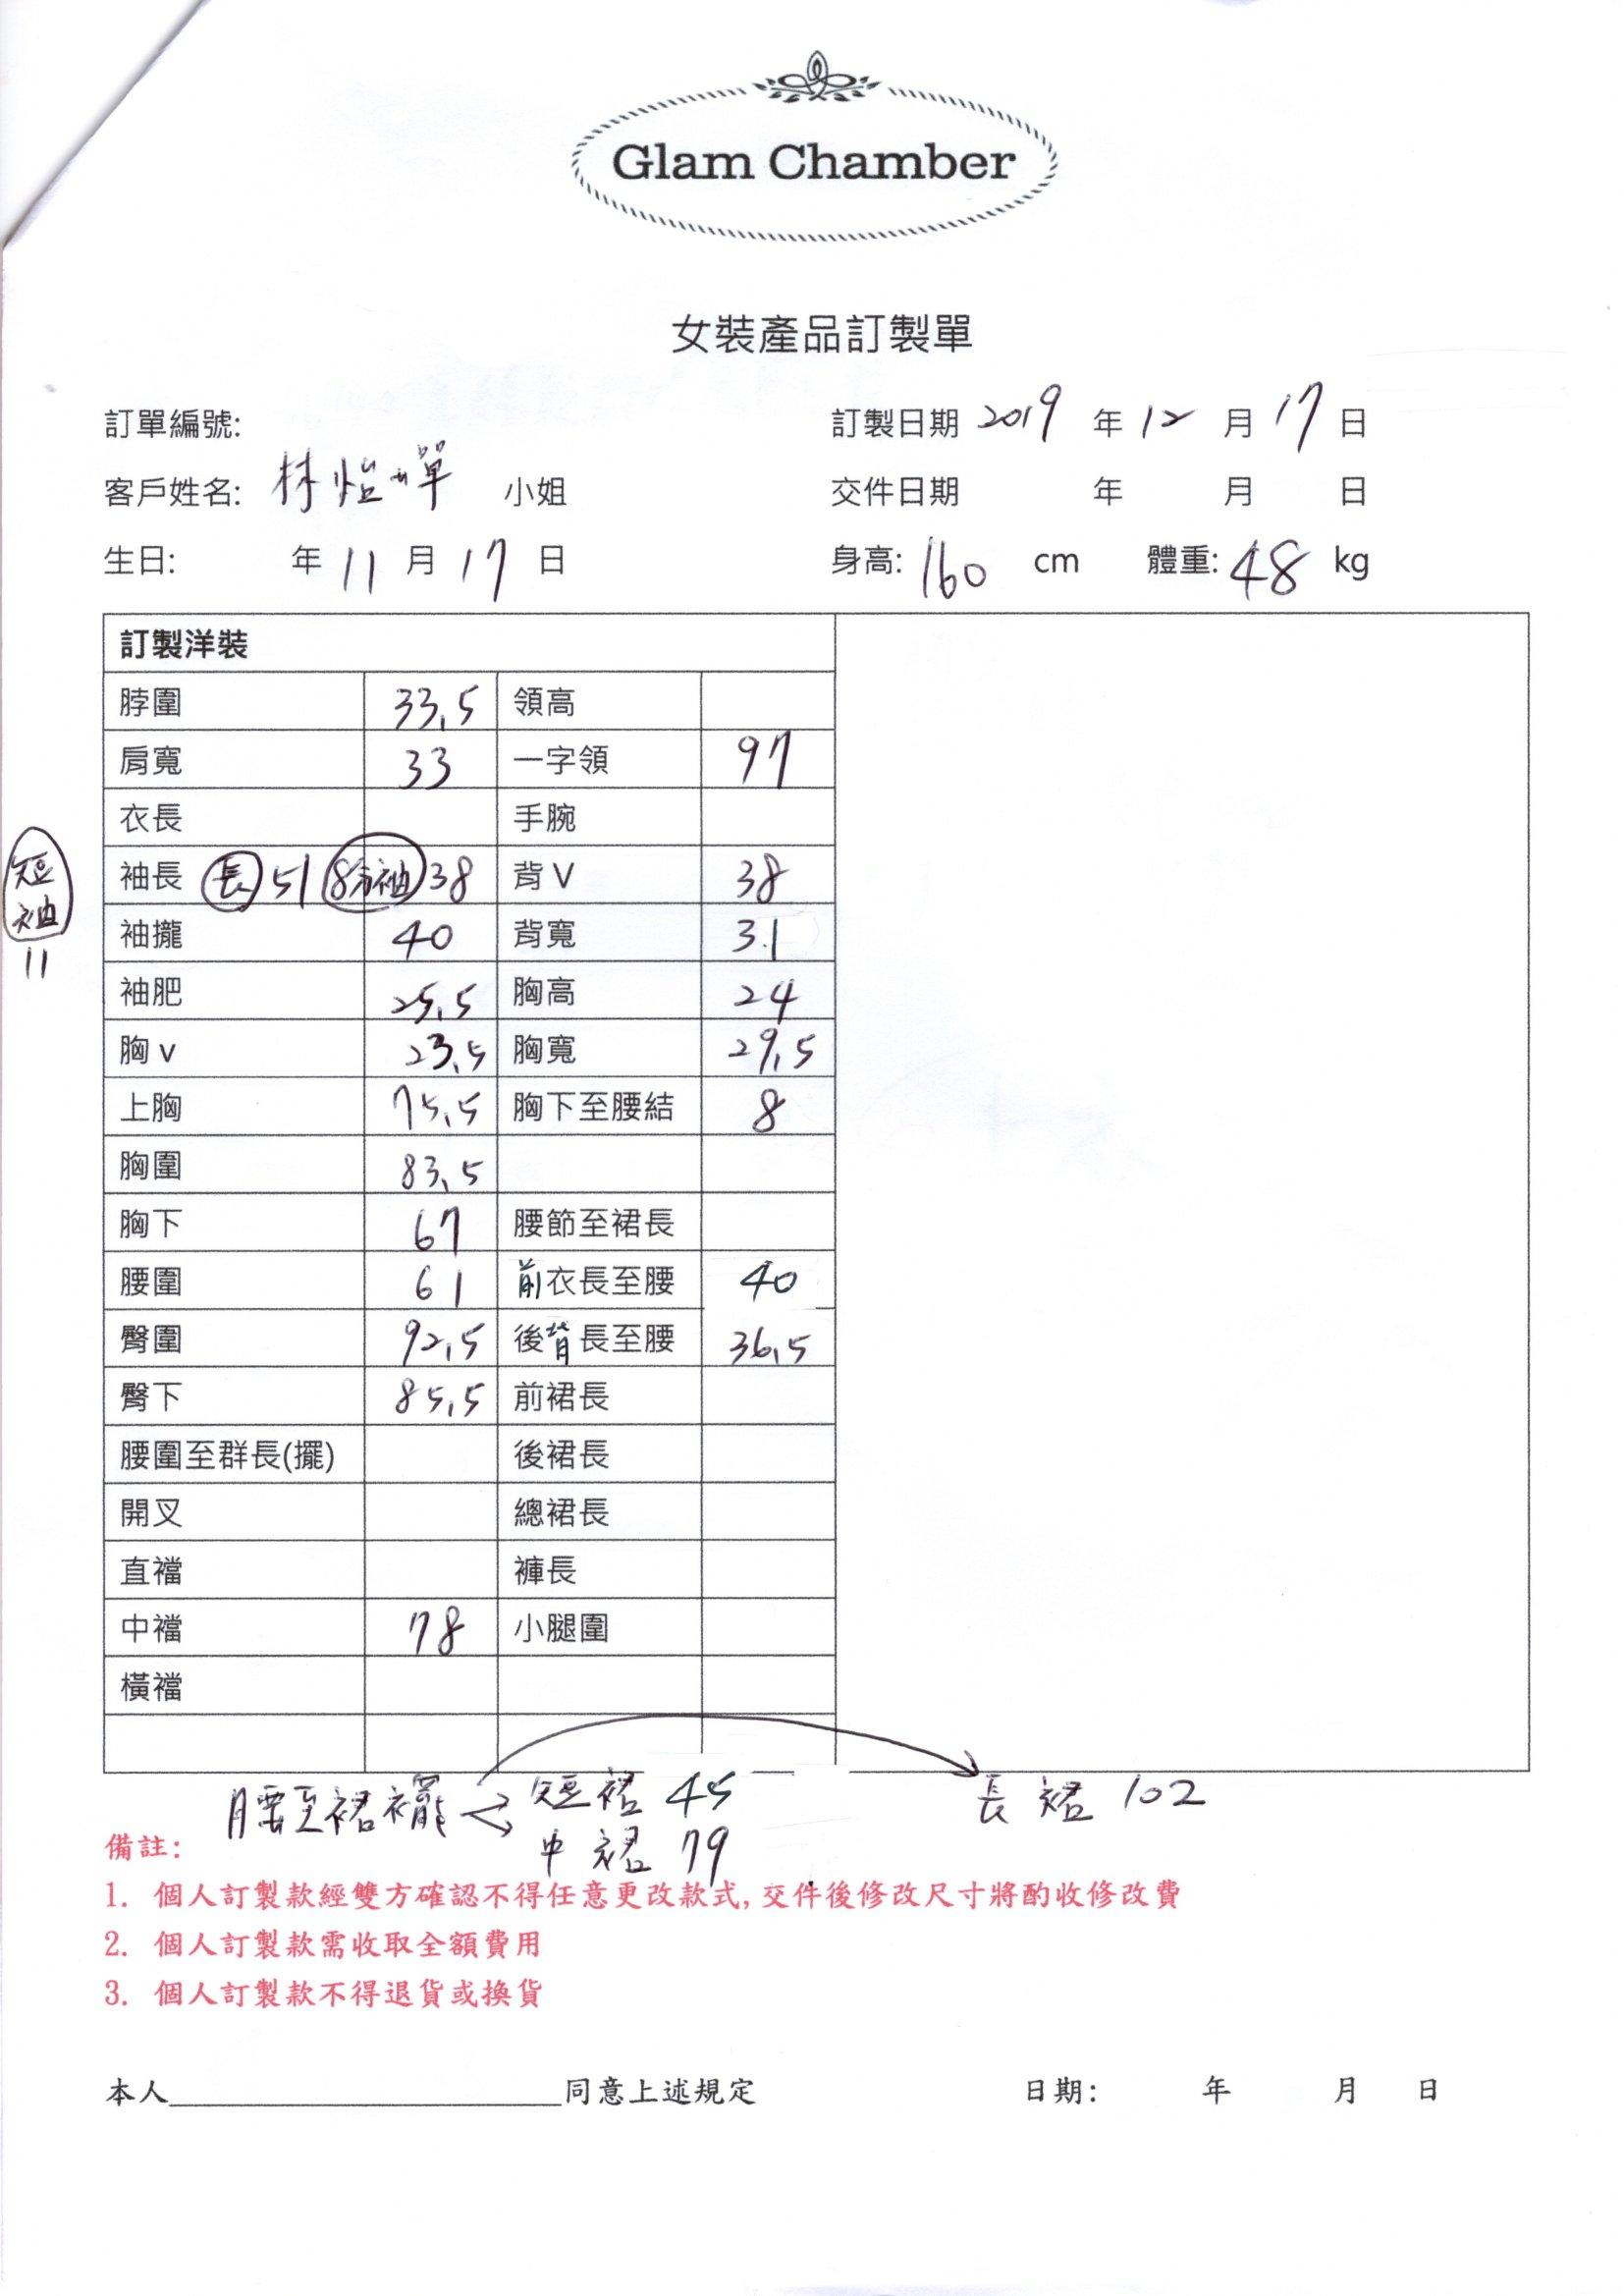 Glam Chamber
女裝產品訂製單
訂單編號: 訂製日期 2019 年 12 月 17 日
客戶姓名: 林愷嬋 小姐 交件日期 年 月 日
生日: 年 11 月 17 日 身高: 160 cm 體重: 48 kg
訂製洋裝
脖圍 33.5 領高
肩寬 33 一字領 97
衣長 手腕
短袖 11
袖長 長 51 8分袖 38 背V 38
袖攏 40 背寬 31
袖肥 25.5 胸高 24
胸v 23.5 胸寬 29.5
上胸 75.5 胸下至腰結 8
胸圍 83.5
胸下 67 腰節至裙長
腰圍 61 前衣長至腰 40
臀圍 92.5 後背長至腰 36.5
臀下 85.5 前裙長
腰圍至群長(擺) 後裙長
開叉 總裙長
直襠 褲長
中襠 78 小腿圍
橫襠
腰至裙襬 短裙 45 長裙 102
中裙 79
備註:
1. 個人訂製款經雙方確認不得任意更改款式,交件後修改尺寸將酌收修改費
2. 個人訂製款需收取全額費用
3. 個人訂製款不得退貨或換貨
本人 同意上述規定 日期: 年 月 日